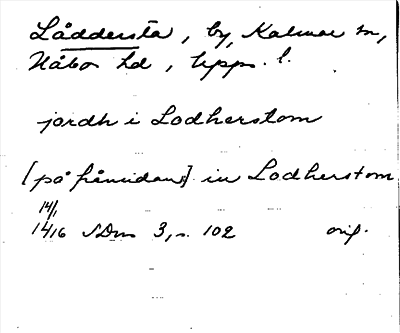 Låddersta, by, Kalmar sn,
Håbo hd, Upps. l.
jordh i Lodherstom
[på frånsidan] in Lodherstom
14/1
1416 SDns 3, s. 102 orig.